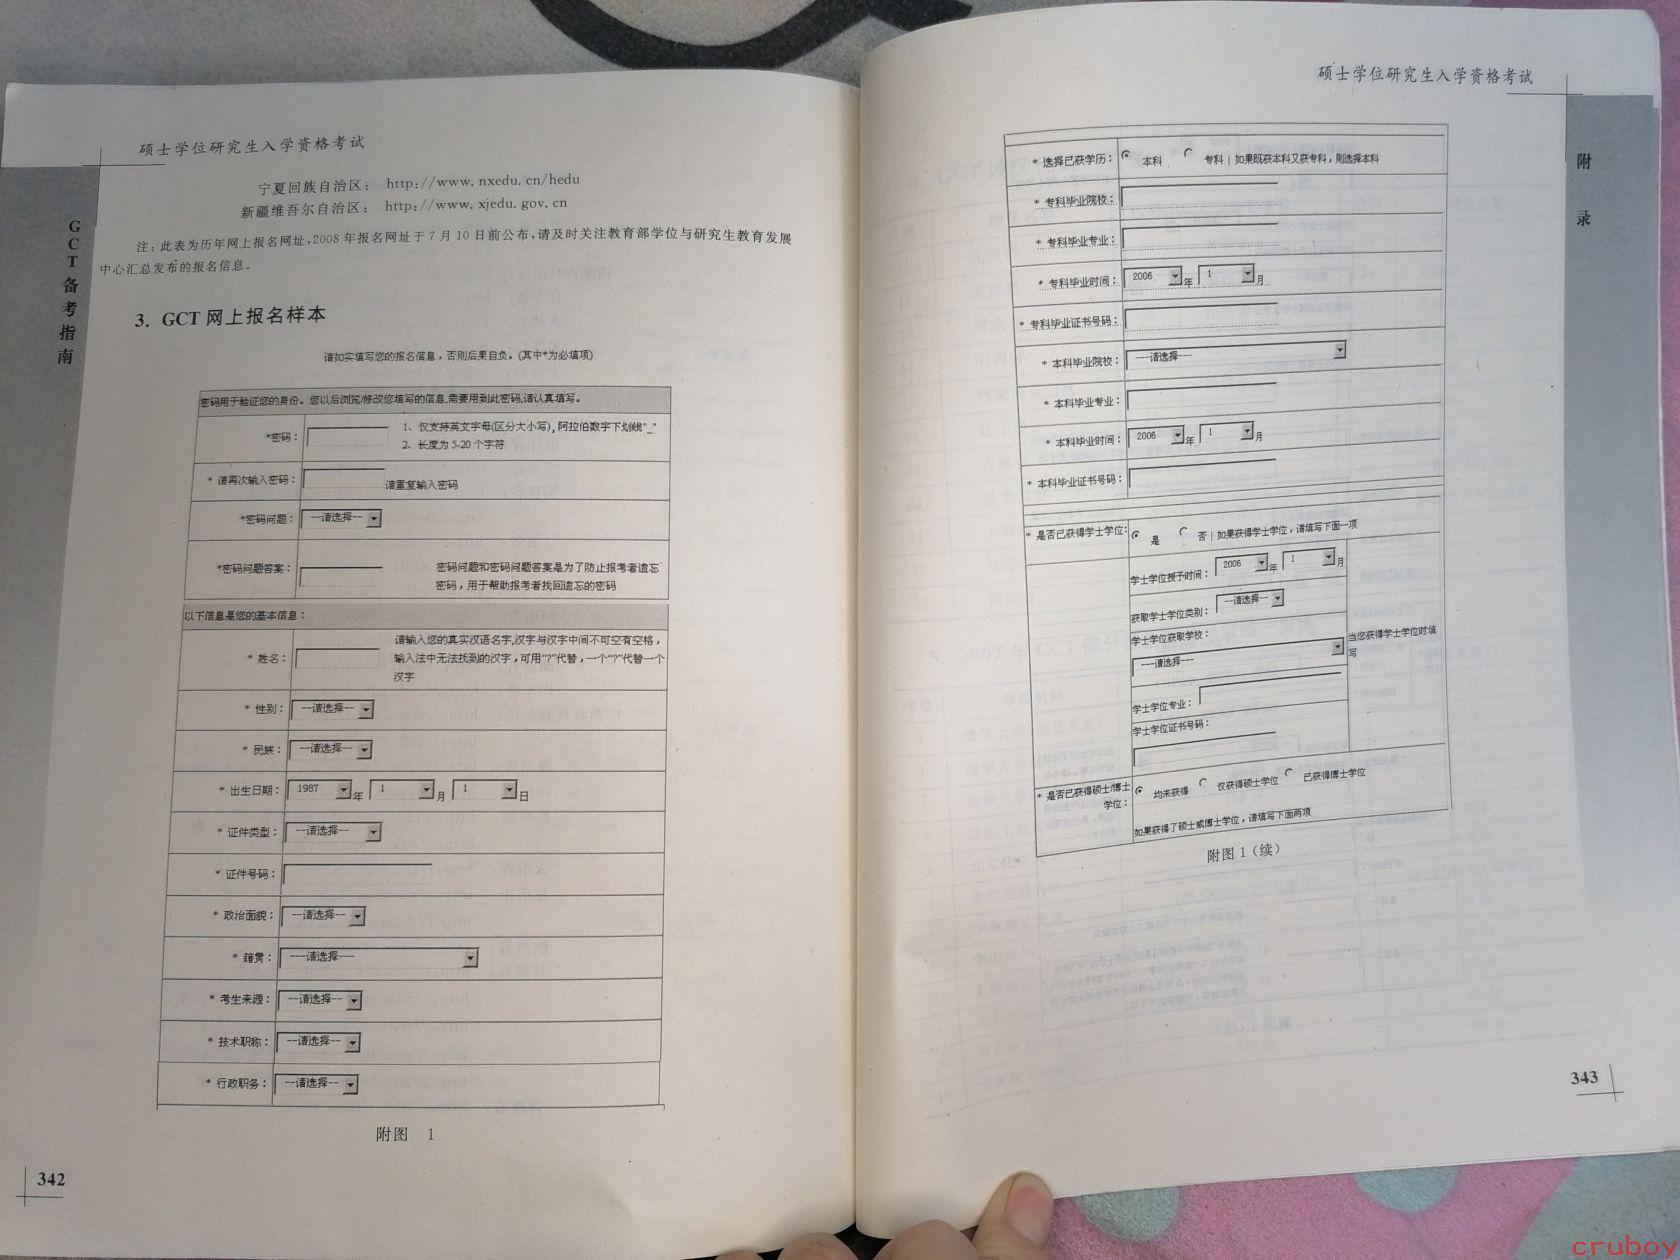 硕士学位研究生入学资格考试
GCT备考指南
宁夏回族自治区： http://www.nxedu.cn/hedu
新疆维吾尔自治区： http://www.xjedu.gov.cn
注：此表为历年网上报名网址，2008年报名网址于7月10日前公布，请及时关注教育部学位与研究生教育发展
中心汇总发布的报名信息。
3. GCT 网上报名样本
请如实填写您的报名信息，否则后果自负。(其中*为必填项)
密码用于验证您的身份。您以后浏览/修改您填写的信息,需要用到此密码,请认真填写。
*密码： 1、仅支持英文字母(区分大小写),阿拉伯数字下划线"_"
2、长度为 5-20 个字符
* 请再次输入密码： 请重复输入密码
*密码问题： --请选择--
*密码问题答案： 密码问题和密码问题答案是为了防止报考者遗忘
密码，用于帮助报考者找回遗忘的密码
以下信息是您的基本信息：
请输入您的真实汉语名字,汉字与汉字中间不可空有空格，
* 姓名： 输入法中无法找到的汉字，可用"?"代替，一个"?"代替一个
汉字
* 性别： --请选择--
* 民族： --请选择--
* 出生日期： 1987 年 1 月 1 日
* 证件类型： --请选择--
* 证件号码：
* 政治面貌： --请选择--
* 籍贯： ---请选择---
* 考生来源： --请选择--
* 技术职称： --请选择--
* 行政职务： --请选择--
附图 1
342
硕士学位研究生入学资格考试
附录
* 选择已获学历： 本科 专科 | 如果既获本科又获专科，则选择本科
* 专科毕业院校：
* 专科毕业专业：
* 专科毕业时间： 2006 年 1 月
* 专科毕业证书号码：
* 本科毕业院校： ---请选择---
* 本科毕业专业：
* 本科毕业时间： 2006 年 1 月
* 本科毕业证书号码：
* 是否已获得学士学位: 是 否 | 如果获得学士学位，请填写下面一项
学士学位授予时间： 2006 年 1 月
获取学士学位类别： --请选择--
学士学位获取学校：
---请选择---
当您获得学士学位时填
写
学士学位专业：
学士学位证书号码：
* 是否已获得硕士/博士
学位： 均未获得 仅获得硕士学位 已获得博士学位
如果获得了硕士或博士学位，请填写下面两项
附图 1（续）
343
cruboy